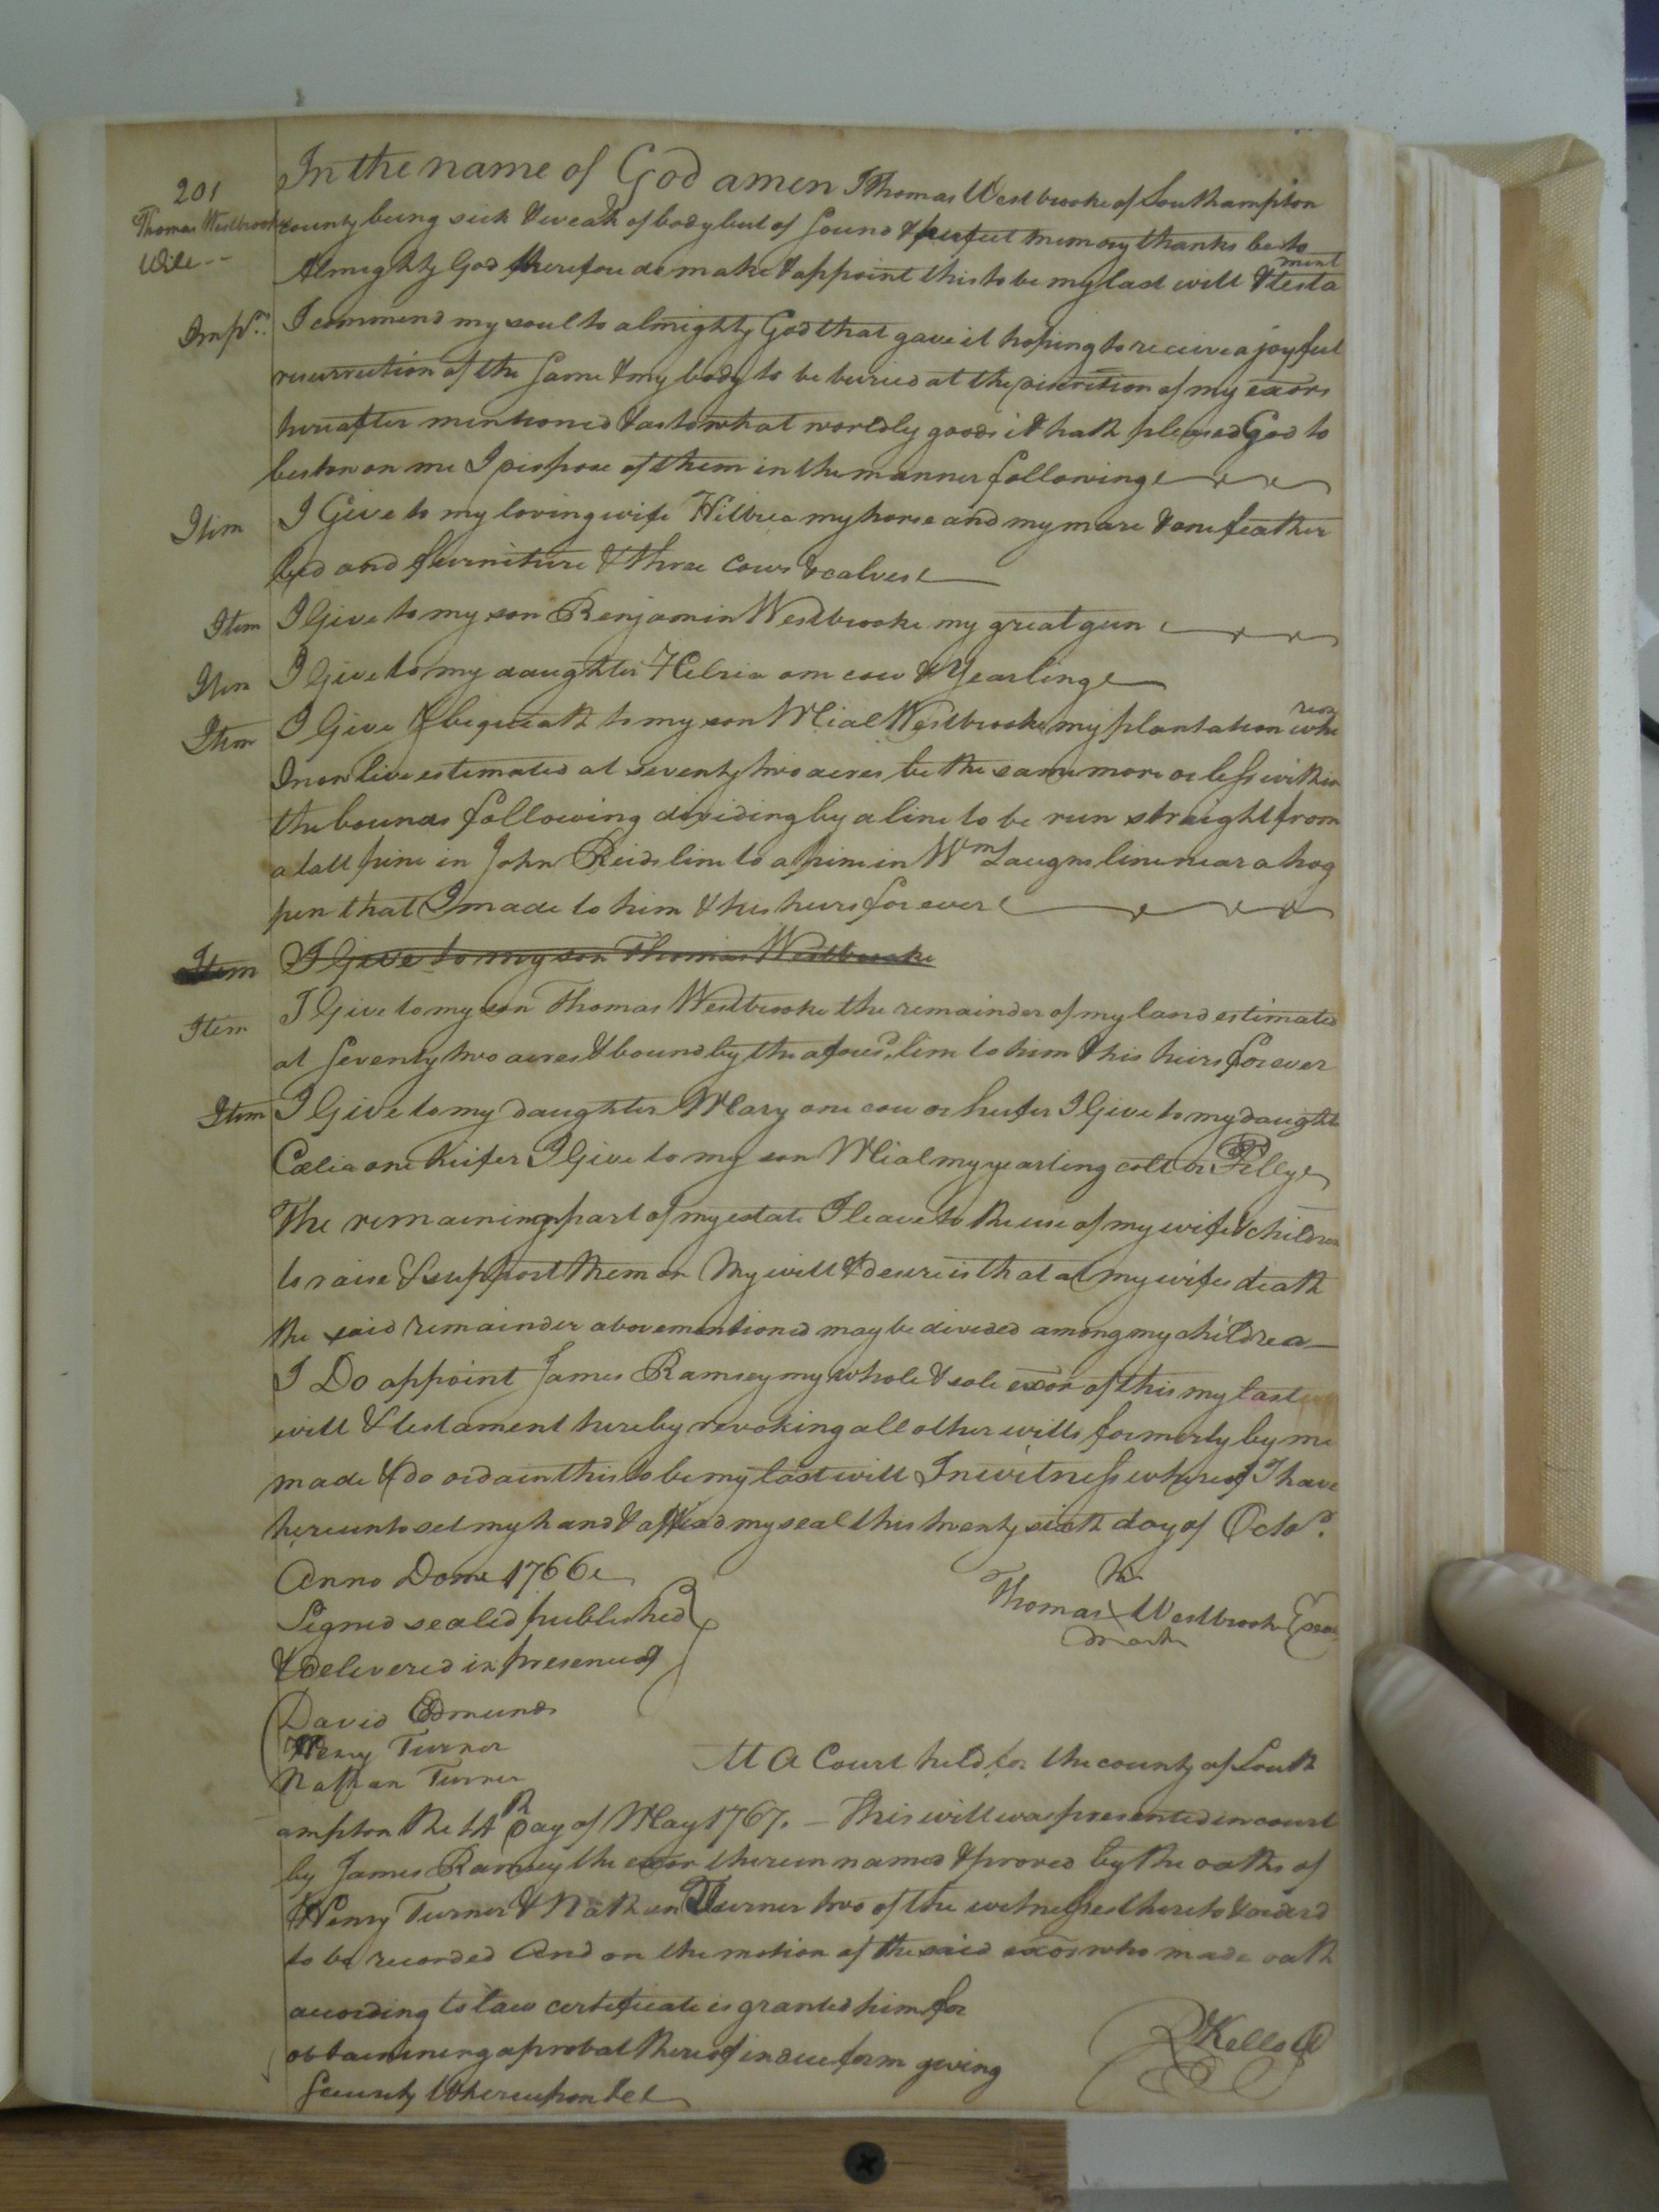 201
Thomas Westbrooke
Will --
In the name of God amen I Thomas Westbrooke of Southampton
county being sick & weak of body but of sound & perfect memory thanks be to
Almighty God therefore do make & appoint this to be my last will & testa
ment
Imprs. I commend my soul to almighty God that gave it hoping to receive a joyful
resurrection of the same & my body to be buried at the discretion of my exors
hereafter mentioned & as to what worldly goods it hath pleased God to
bestow on me I dispose of them in the manner following
Item I Give to my loving wife my horse and my mare & one feather
bed and furniture & three cows & calves
Item I Give to my son Benjamin Westbrooke my great gun
Item I Give to my daughter one cow & Yearling
Item I Give & bequeath to my son Mial Westbrooke my plantation whe
reon
I now live estimated at seventy two acres be the same more or less within
the bounds following dividing by a line to be run straight from
a tall pine in John Reids line to a pine in Wm line near a hog
pen that I made to him & his heirs for ever
Item I Give to my son Thomas Westbrooke
Item I Give to my son Thomas Westbrooke the remainder of my land estimated
at seventy two acres & bound by the aforesd. line to him & his heirs for ever
Item I Give to my daughter Mary one cow or heifer I Give to my daught
Cælia one heifer I Give to my son Mial my yearling colt or Filly
The remaining part of my estate I leave to the use of my wife & children
to raise & support them on My will & desire is that at my wifes death
the said remainder abovementioned may be divided among my children
I Do appoint James Ramsey my whole & sole exor of this my last
will & testament hereby revoking all other wills formerly by me
made & do ordain this to be my last will In witness whereof I have
hereunto set my hand & affixed my seal this twenty sixth day of Octor.
Anno Dome 1766
Signed sealed published
& delivered in presence of
his
Thomas X Westbrooke Seal
mark
David Edmunds
Henry Turner
Nathan Turner
At a Court held for the county of South
ampton the 14th Day of May 1767. - This will was presented in court
by James Ramsey the exor therein named & proved by the oaths of
Henry Turner & Nathan Turner two of the witnesses thereto & orderd
to be recorded And on the motion of the said exor who made oath
according to law certificate is granted him for
obtaininng a probat thereof in due form giving
security Whereupon &c
R Kello